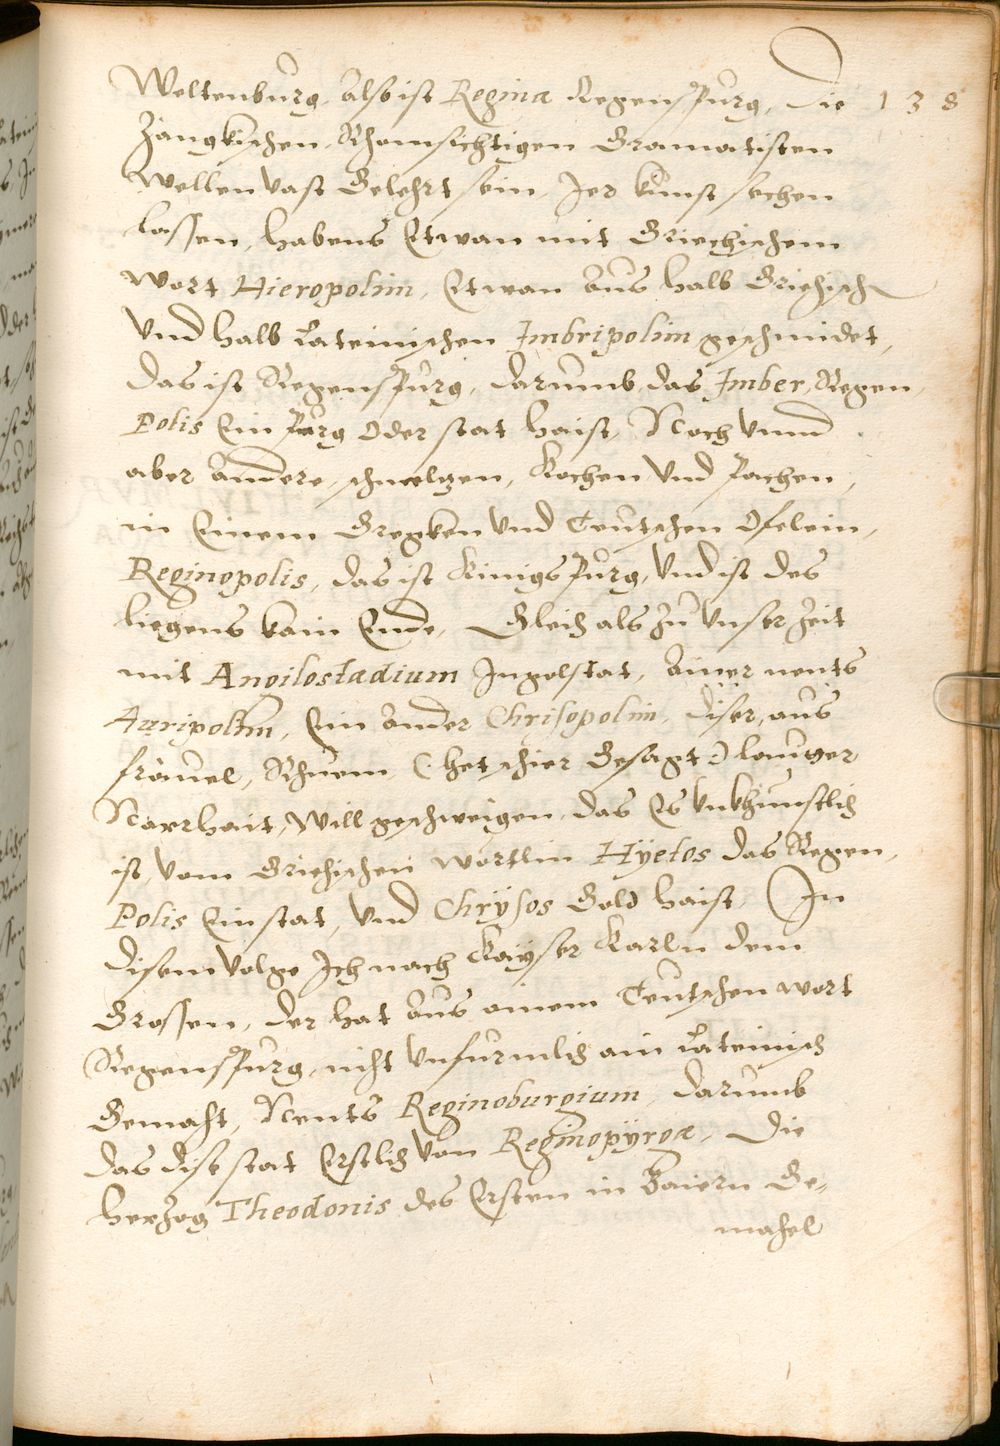 Weltenburg, Also ist Regina Regenspurg, Die 138
Zangkischen, Rhomsichtigen Gramatisten
Wellen vast Gelehrt sein, Jer kunst sechen
lassen, habens Etwan mit Griechischem
wort Hieropolim, Etwan Aus halb Griehisch
Vnd halb Lateinischen Jmbripolim geschmidet,
Das ist Regenspurg, Darumb das Jmber, Regen,
Polis Ein Purg Oder stat haist, Noch Vnnd
aber Andere, schmelzen, Kochen Vnd Pachen,
in Einem Gregken Vnd Teutschen Ofelein,
Reginopolis, das ist Kinigspurg, Vnd ist des
liegens kain Ende, Gleich als Zu Vnser Zeit
mit Angilostadium Jngolstat, Ainer nents
Auripolim, Ein Ander Chrisopolim, diser, aus
fräuel, Rhuem (: het schier Gesagt :) lautter
Narrhait, Will geschweigen, das Es Vnkhunstlich
ist, Vom Griehischen wortlin Hÿetos das Regen,
Polis Ein stat, Vnd Chrÿsos Gold haist, Jn
disem Volge Jch nach Kaÿser Karln dem
Grossen, der hat Aus ainem Teutschen wort
Regenspurg, niht Vnfurmlich ain Lateinisch
Gemaht, Nents Reginoburgium, Darumb
das dise stat Erstlich Von Reginopÿrga, Die
herzog Theodonis des Ersten in Baiern Ge¬
mahel